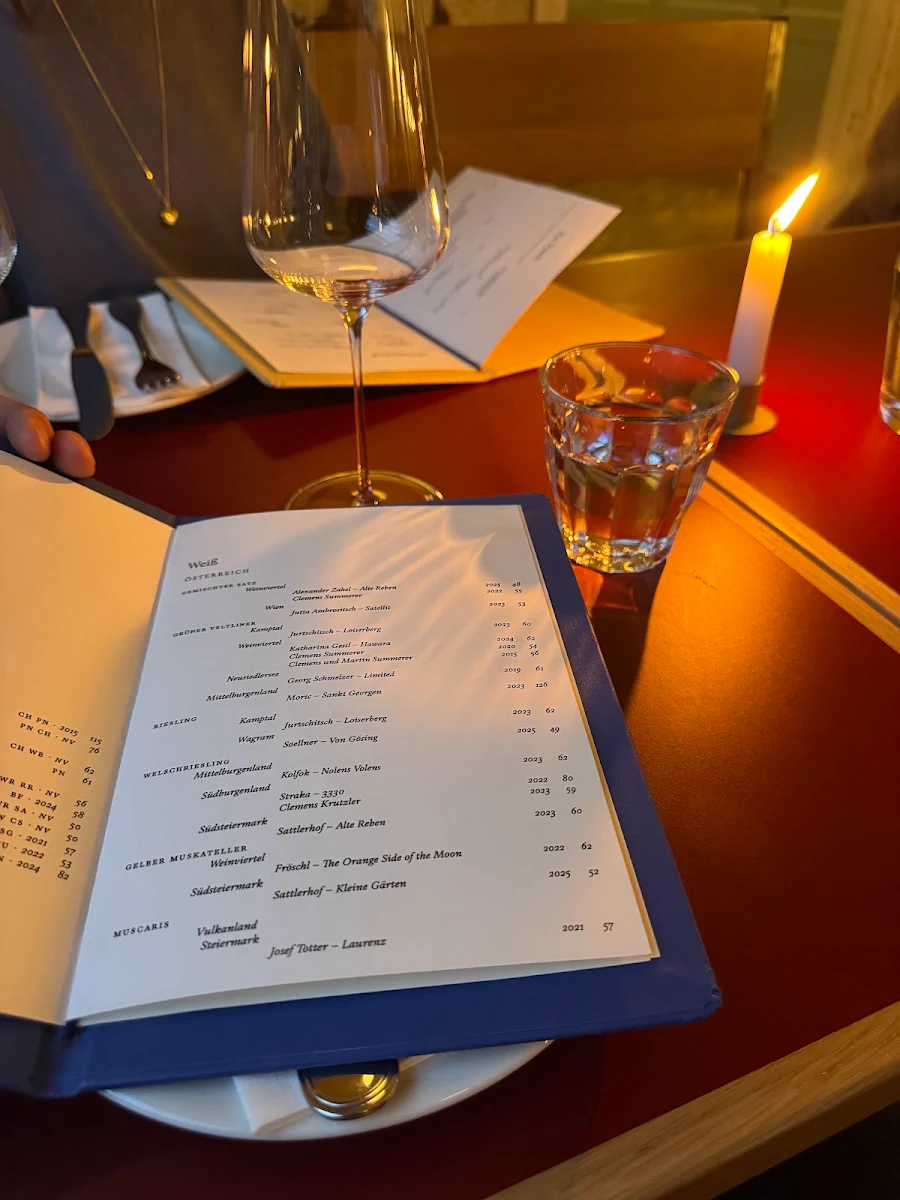 CH PN · 2015 115
PN CH · NV 76
CH WB · NV 62
PN 61
WR RR · NV 56
BF · 2024 58
SA · NV 50
CS · NV 50
SG · 2021 57
· 2022 53
· 2024 82
Weiß
ÖSTERREICH
GEMISCHTER SATZ Weinviertel Alexander Zahel – Alte Reben 2025 48
Clemens Summerer 2022 55
Wien Jutta Ambrositsch – Satellit 2023 53
GRÜNER VELTLINER Kamptal Jurtschitsch – Loiserberg 2023 60
Weinviertel Katharina Gessl – Hawara 2024 62
Clemens Summerer 2020 54
Clemens und Martin Summerer 2015 56
Neusiedlersee Georg Schmelzer – Limited 2019 61
Mittelburgenland Moric – Sankt Georgen 2023 126
RIESLING Kamptal Jurtschitsch – Loiserberg 2023 62
Wagram Soellner – Von Gösing 2025 49
WELSCHRIESLING
Mittelburgenland Kolfok – Nolens Volens 2023 62
Südburgenland Straka – 3330 2022 80
Clemens Krutzler 2023 59
Südsteiermark Sattlerhof – Alte Reben 2023 60
GELBER MUSKATELLER
Weinviertel Fröschl – The Orange Side of the Moon 2022 62
Südsteiermark Sattlerhof – Kleine Gärten 2025 52
MUSCARIS Vulkanland
Steiermark Josef Totter – Laurenz 2021 57